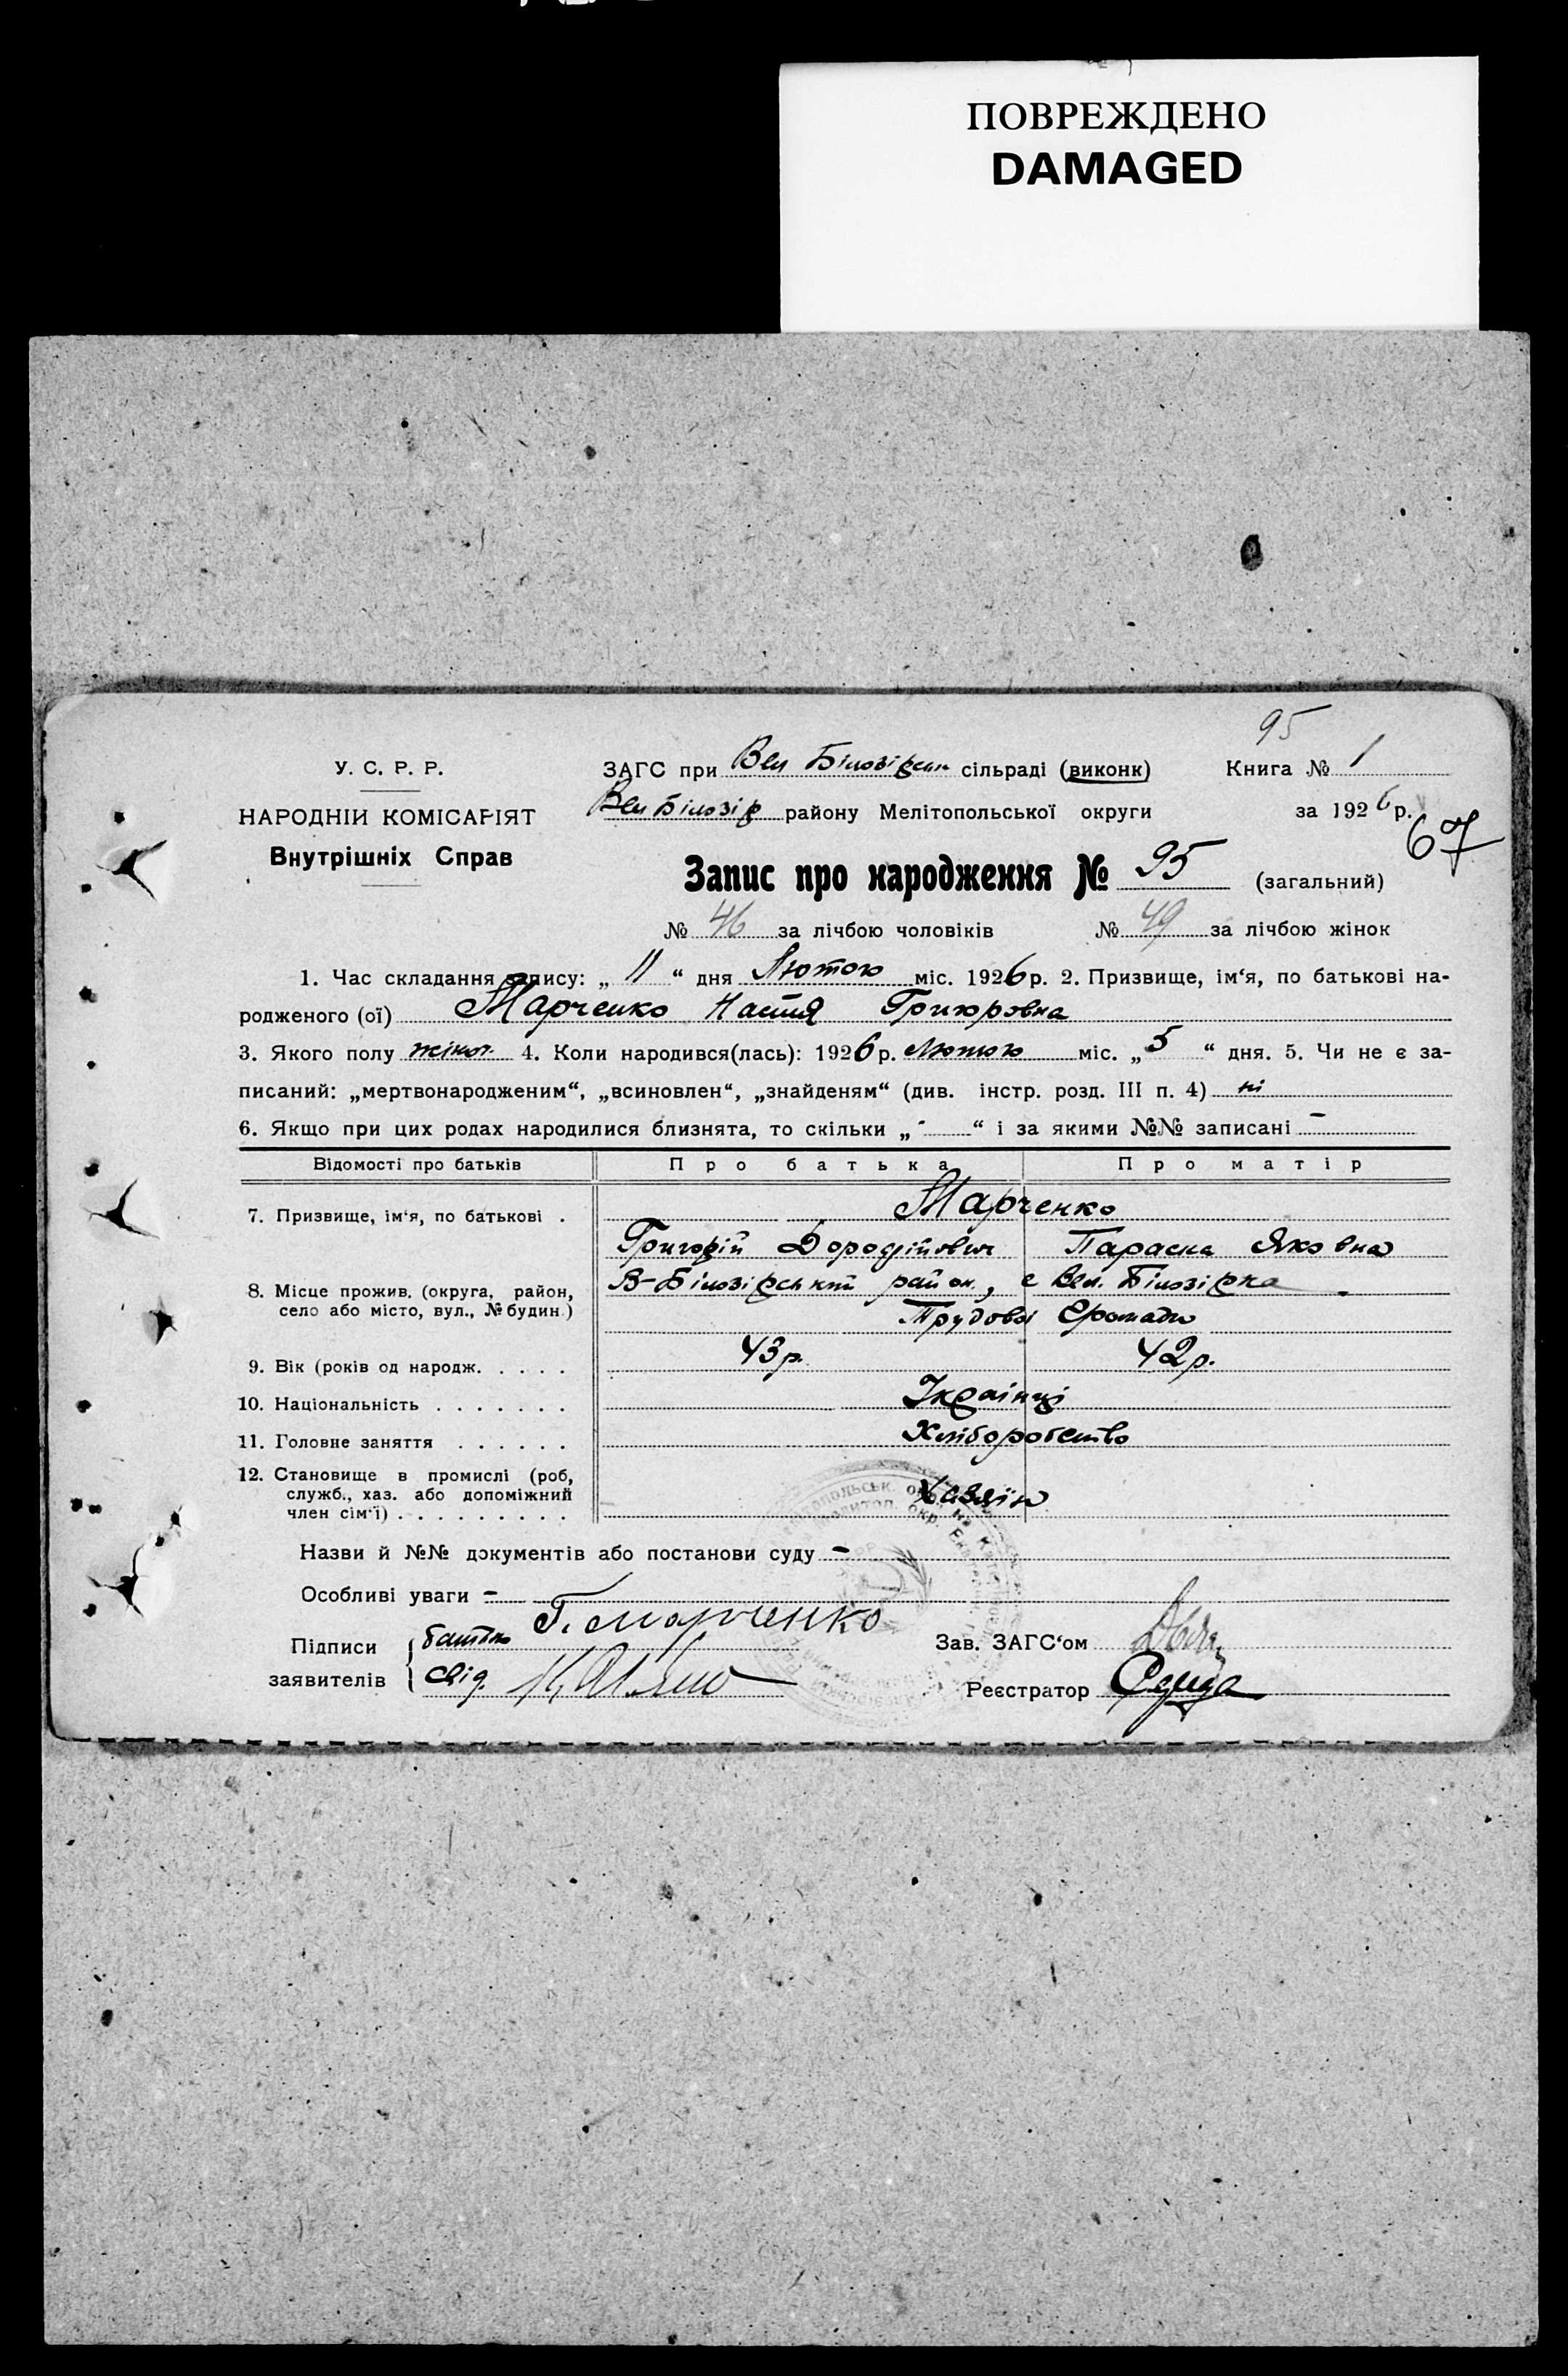 ПОВРЕЖДЕНО
DAMAGED
95
У. С. Р. Р.
НАРОДНІЙ КОМІСАРІЯТ
Внутрішніх Справ
ЗАГС при Вел Білозірськ сільраді (виконк)
Книга № 1
Вел Білозір району Мелітопольської округи
за 1926 р.
67
Запис про народження № 95 (загальний)
№ 46 за лічбою чоловіків № 49 за лічбою жінок
1. Час складання запису: „ 11 “ дня Лютого міс. 1926 р. 2. Призвище, ім‘я, по батькові на-
родженого (ої) Марченко Настя Григоровна
3. Якого полу жіноч. 4. Коли народився(лась): 1926 р. Лютого міс. „ 5 “ дня. 5. Чи не є за-
писаний: „мертвонародженим“, „всиновлен“, „знайденям“ (див. інстр. розд. III п. 4) ні
6. Якщо при цих родах народилися близнята, то скільки „ - “ і за якими №№ записані –
Відомості про батьків Про батька Про матір
7. Призвище, ім‘я, по батькові . Марченко
Григорій Дорофійович Параска Яковна
8. Місце прожив. (округа, район, село або місто, вул., № будин.) В-Білозірський район, с Вел. Білозірка
Трудової Громади
9. Вік (років од народж. . . . . 43 р. 42 р.
10. Національність . . . . . . . Українці
11. Головне заняття . . . . . . Хліборобство
12. Становище в промислі (роб, служб., хаз. або допоміжний член сім‘ї) . . . . . . . . . Хазяїн
Назви й №№ документів або постанови суду –
Особливі уваги –
Підписи заявителів
батько Г. Марченко
свід.
Зав. ЗАГС‘ом
Реєстратор